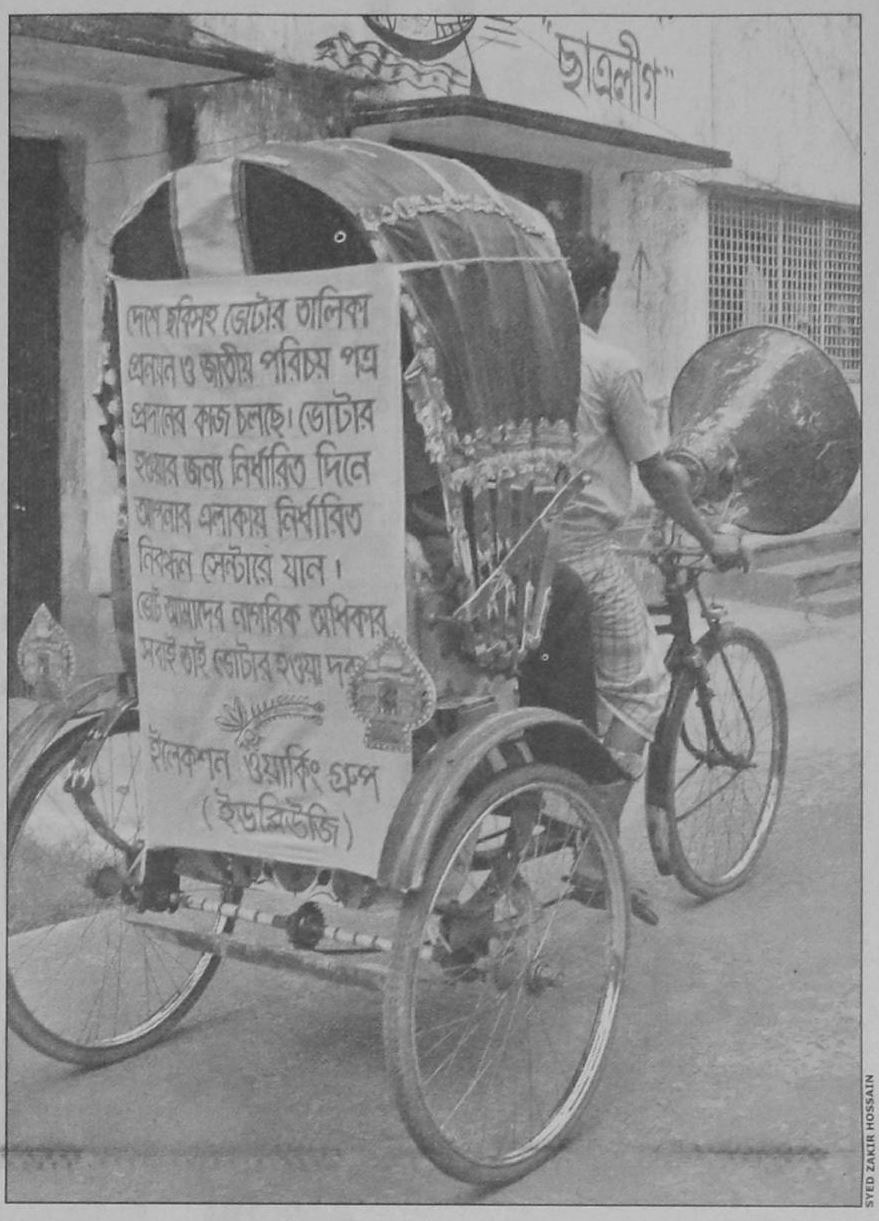 "ছাত্রলীগ"
দেশে ছবিসহ ভোটার তালিকা
প্রনয়ন ও জাতীয় পরিচয় পত্র
প্রদানের কাজ চলছে। ভোটার
হওয়ার জন্য নির্ধারিত দিনে
আপনার এলাকায় নির্ধারিত
নিবন্ধন সেন্টারে যান।
ভোট আমাদের নাগরিক অধিকার
সবাই তাই ভোটার হওয়া
ইলেকশন ওয়ার্কিং গ্রুপ
(ইডব্লিউজি)
SYED ZAKIR HOSSAIN